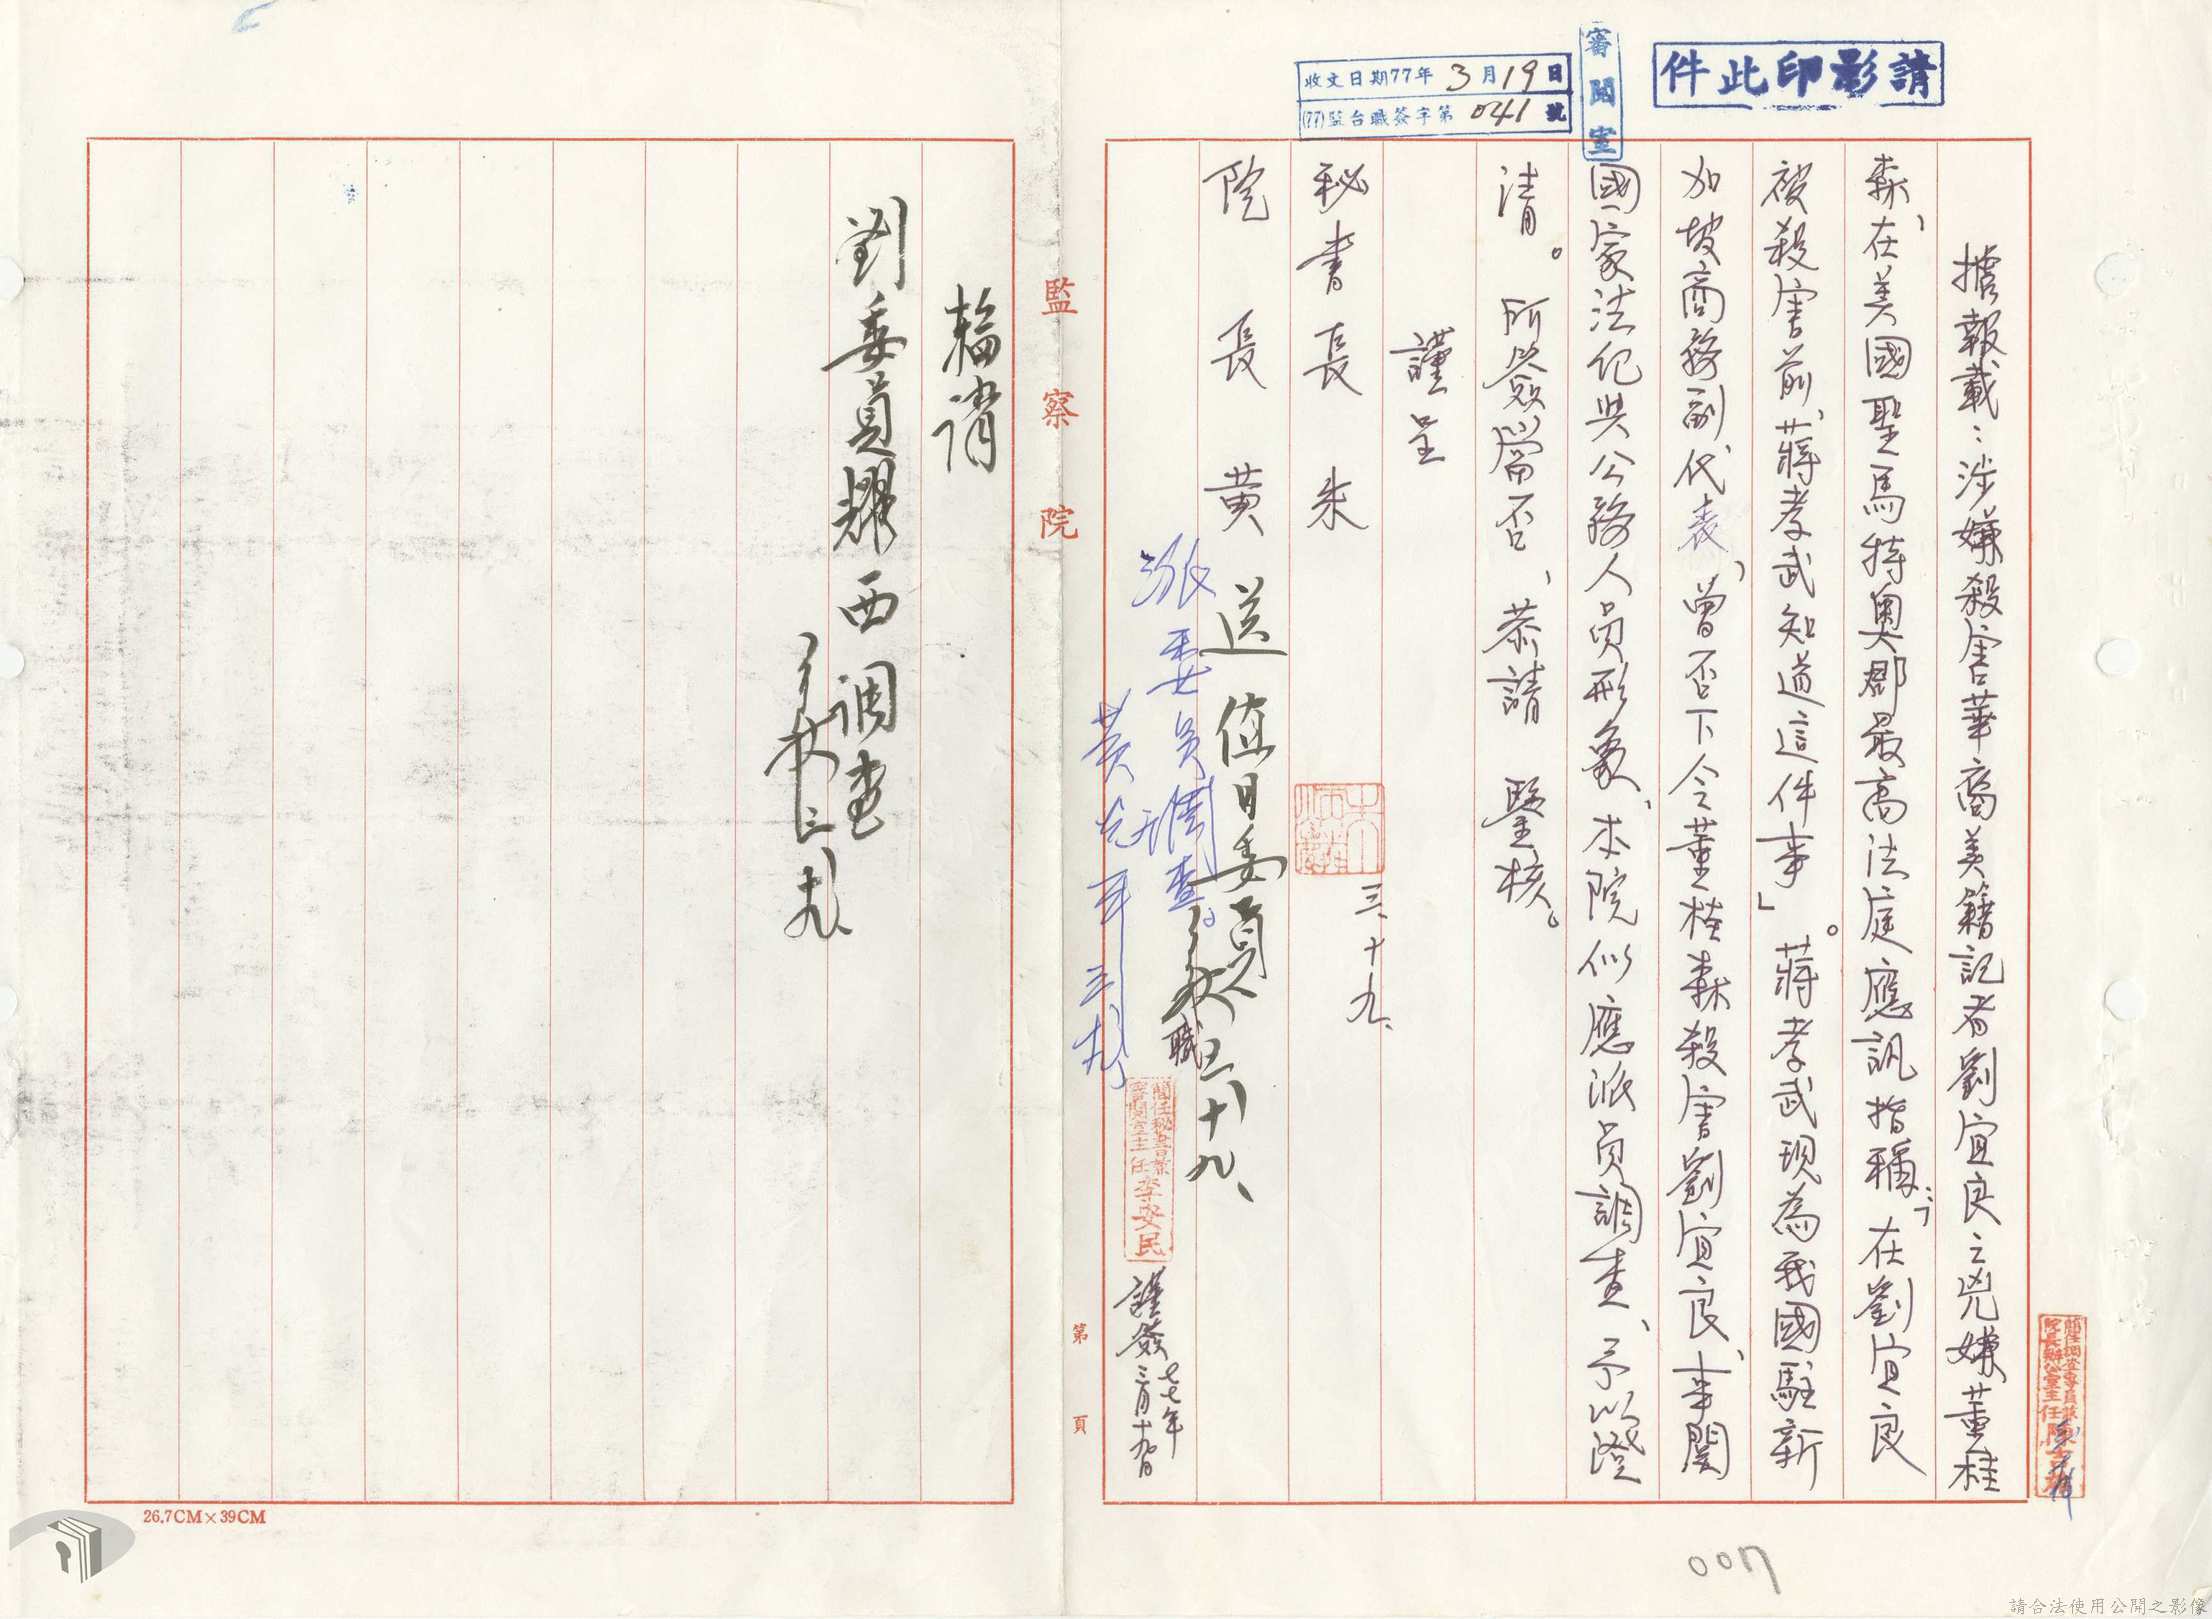 請影印此件
審閱室
收文日期77年3月19日
(77)監台職簽字第041號
據報載：涉嫌殺害華裔美籍記者劉宜良之兇嫌董桂
森、在美國聖馬特奧郡最高法庭應訊指稱：「在劉宜良
被殺害前、蔣孝武知道這件事」。蔣孝武現為我國駐新
加坡商務副代表、曾否下令董桂森殺害劉宜良、事關
國家法紀與公務人員形象、本院似應派員調查、予以澄
清。所簽當否、恭請　鑒核。
謹呈
秘書長　朱　三、十九、
院長　黃　送值日委員　三、十九、
張委員調查。
黃　三、十九
職
簡任秘書兼
審閱室主任李安民
謹簽
七七年
三月十九日
監察院
第　頁
輪請
劉委員耀西調查
三、十九、
26.7CM×39CM
007
請合法使用公開之影像